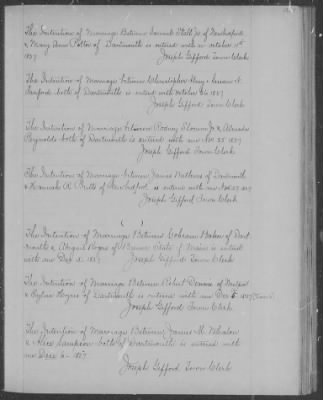 The Intention of Marriage Between Samuel Stall Jr of New Bedford
& Mary Ann Potter of Dartmouth is entred with me October 11th
1857 Joseph Gifford Town Clerk
The Intention of Marriage between Christopher Macy & Susan H.
Sanford both of Dartmouth is entred with me October 26 1857
Joseph Gifford Town Clerk
The Intention of Marriage between Rodney Slocum Jr & Almeda
Reynolds both of Dartmouth is entred with me Nov 25 1857
Joseph Gifford Town Clerk
The Intention of Marriage between James Mathews of Dartmouth
& Hannah R. Butts of New Bedford is entred with me Nov 27 1857
Joseph Gifford Town Clerk
The Intention of Marriage Between Cobran Baker of Dart
mouth & Abigail of State of Maine is entred
with me Dec 5. 1857 Joseph Gifford Town Clerk
The Intention of Marriage Between Robert Dennis of
& of Dartmouth is entred with me Dec 5 1857
Joseph Gifford Town Clerk
The Intention of Marriage Between James M. Whalon
& Alice Sampson both of Dartmouth is entred with
me Dec 6 1857
Joseph Gifford Town Clerk